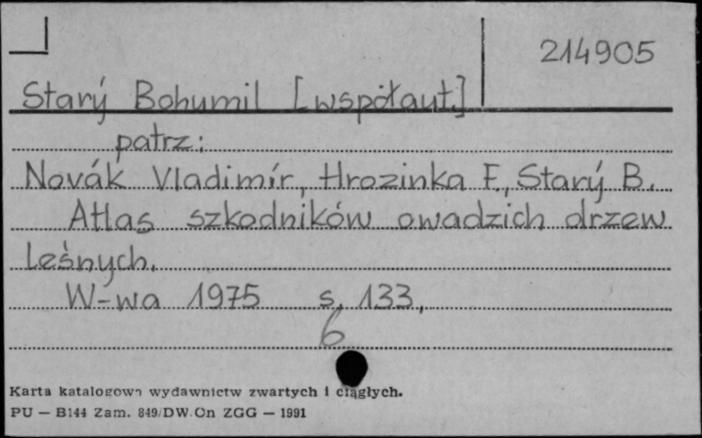 214905
Starý Bohumil [współaut.]
patrz:
Novák Vladimír, Hrozinka F., Starý B.
Atlas szkodników owadzich drzew
leśnych.
W-wa 1975 s. 133,
6
Karta katalogowa wydawnictw zwartych i ciągłych.
PU — B144 Zam. 849/DW.On ZGG — 1991